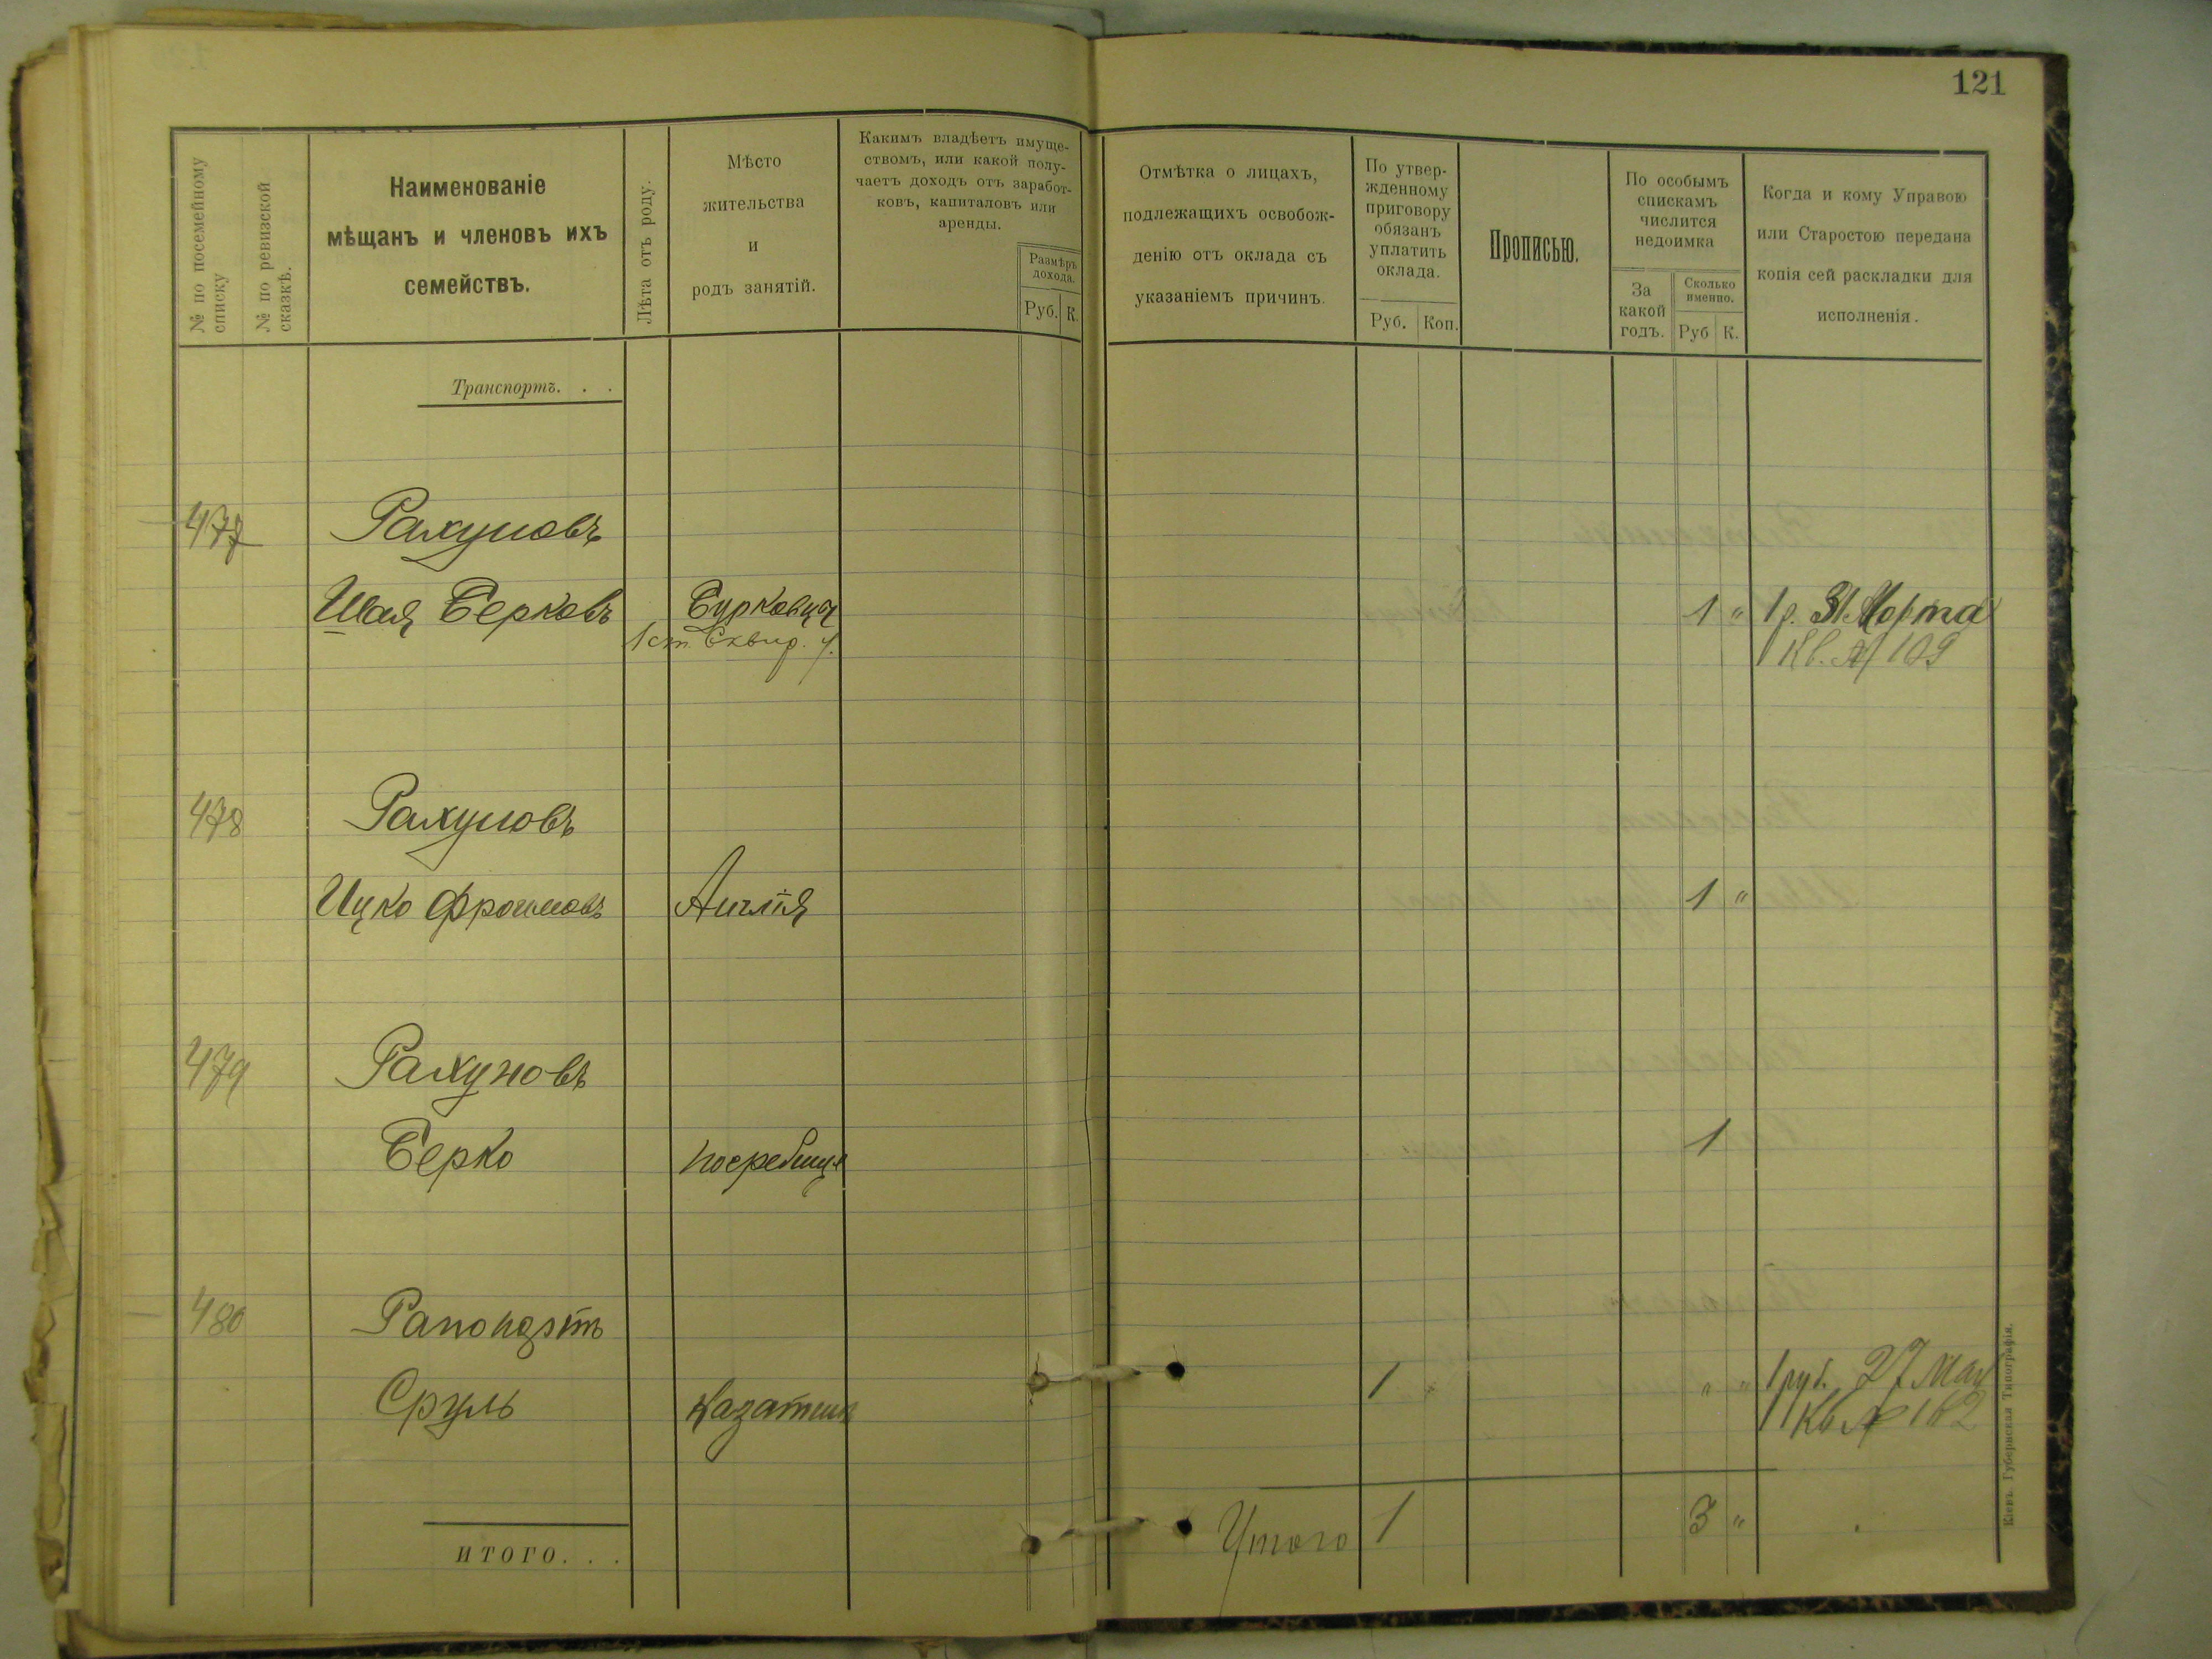 121
№ по посемейному
списку
№ по ревизской
сказкѣ.
Наименованіе
мѣщанъ и членовъ ихъ
семействъ.
Лѣта отъ роду.
Мѣсто
жительства
и
родъ занятій.
Какимъ владѣетъ имуще-
ствомъ, или какой полу-
чаетъ доходъ отъ заработ-
ковъ, капиталовъ или
аренды.
Размѣръ
дохода.
Руб. К.
Отмѣтка о лицахъ,
подлежащихъ освобож-
денію отъ оклада съ
указаніемъ причинъ.
По утвер-
жденному
приговору
обязанъ
уплатить
оклада.
Руб. Коп.
Прописью.
По особымъ
спискамъ
числится
недоимка
За
какой
годъ.
Сколько
именно.
Руб К.
Когда и кому Управою
или Старостою передана
копія сей раскладки для
исполненія.
Транспортъ. . .
477 Рахуновъ
Шая Берковъ Бурковцы 1 " 1 р. 31 Марта
1 ст. Сквир. у. Кв. № 109
478 Рахуновъ
Ицко Фроимовъ Англія 1 "
479 Рахуновъ
Берко Погребище 1
480 Рапопортъ
Сруль Казатинъ 1 " " " 1 руб. 27 Мая
Кв №
Итого 1 3 "
ИТОГО. . .
Кіевъ. Губернская Типографія.